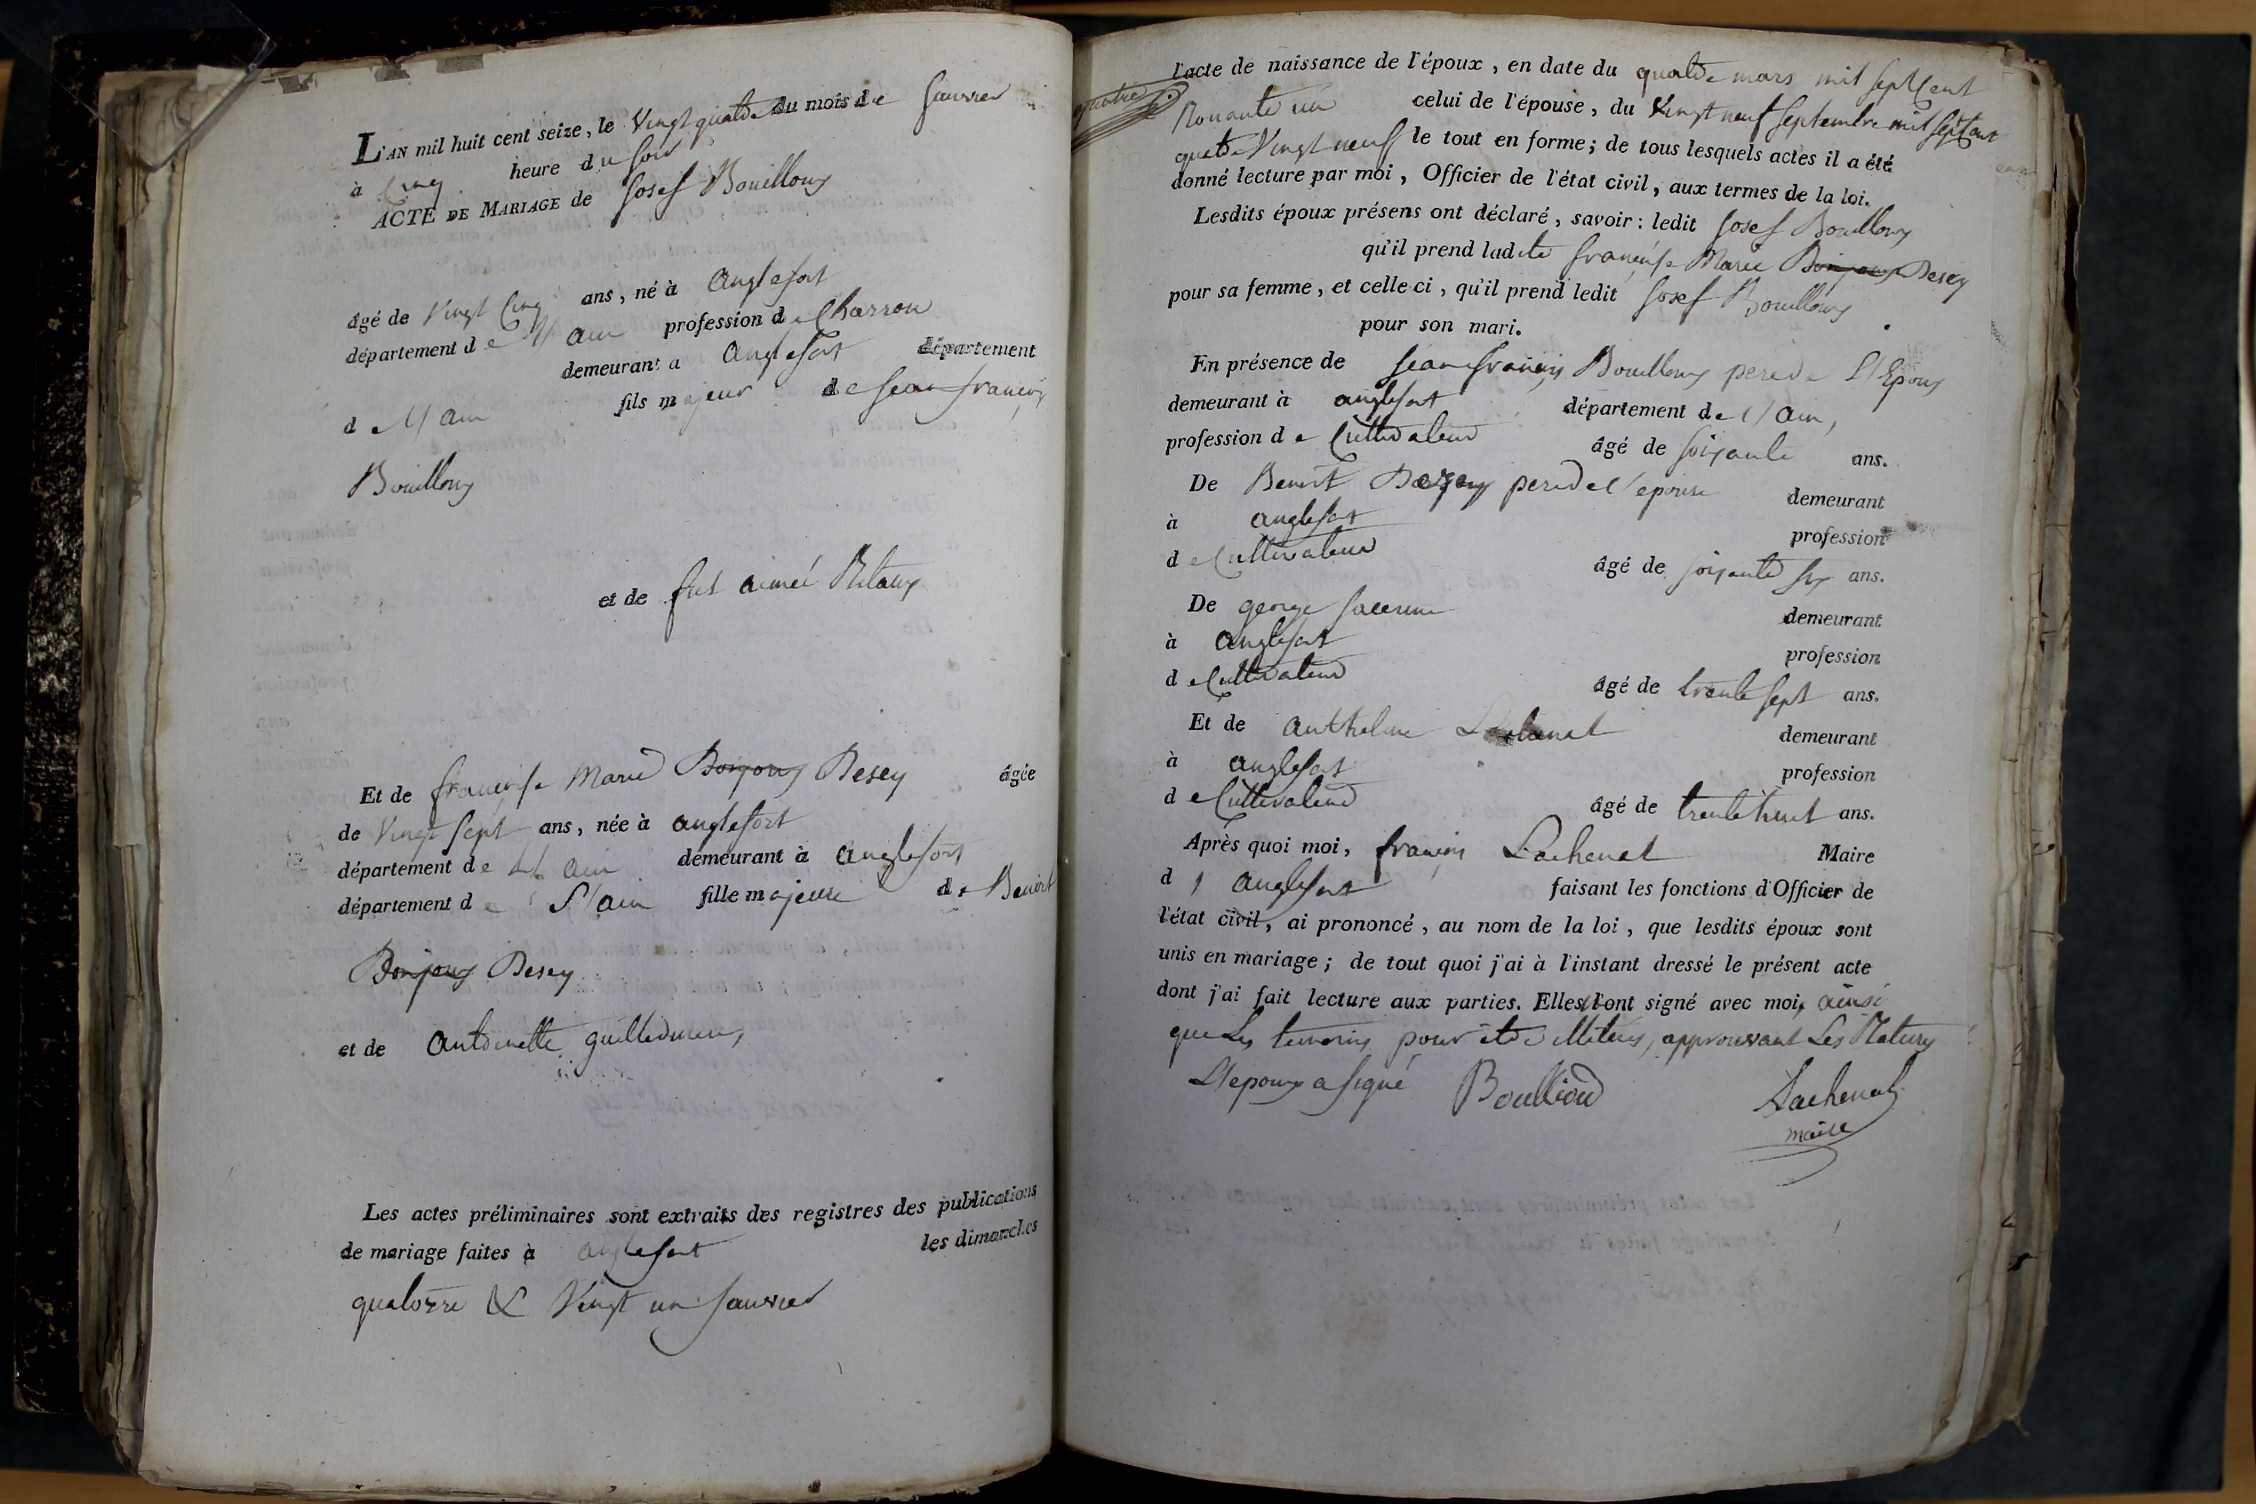 L'AN mil huit cent seize, le Vingt quatre du mois de Janvier
à Cinq heure du soir
ACTE DE MARIAGE de Josef Bouilloux
âgé de Vingt Cinq ans, né à anglefort
département de l'ain profession de Charron
demeurant a anglefort département
de l'ain fils majeur de Jean francois
Bouilloux
et de fut aimée Bilaux
Et de francoise Marie Bonjoux Besey âgée
de Vingt sept ans, née à anglefort
département de l'ain demeurant à anglefort
département de l'ain fille majeure de Benoit
Bonjoux Besey
et de antoinette guillermin,
Les actes préliminaires sont extraits des registres des publications
de mariage faites à anglefort les dimanches
quatorze & Vingt un Janvier
l'acte de naissance de l'époux, en date du quatre mars mil sept Cent
Nonante un celui de l'épouse, du Vingt neuf septembre mil sept Cent
quatre Vingt neuf le tout en forme; de tous lesquels actes il a été
donné lecture par moi, Officier de l'état civil, aux termes de la loi.
Lesdits époux présens ont déclaré, savoir: ledit Josef Bouilloux
qu'il prend ladite francoise Marie Bonjoux Besey
pour sa femme, et celle ci, qu'il prend ledit Josef Bouilloux
pour son mari.
En présence de Jean francois Bouilloux pere de L'Epoux
demeurant à anglefort département de l'ain,
profession de Cultivateur âgé de soixante ans.
De Benoit Besey pere de l'epouse demeurant
à anglefort profession
de Cultivateur âgé de soixante six ans.
De george demeurant
à anglefort profession
de Cultivateur âgé de trente sept ans.
Et de anthelme Lachenal demeurant
à anglefort profession
de Cultivateur âgé de trente huit ans.
Après quoi moi, francois Lachenal Maire
d' anglefort faisant les fonctions d'Officier de
l'état civil, ai prononcé, au nom de la loi, que lesdits époux sont
unis en mariage; de tout quoi j'ai à l'instant dressé le présent acte
dont j'ai fait lecture aux parties. Elles l'ont signé avec moi, ainsi
que Les temoins pour etre illiterés, approuvant Les Ratures
L'epoux a signé Boullioud Lachenal
maire